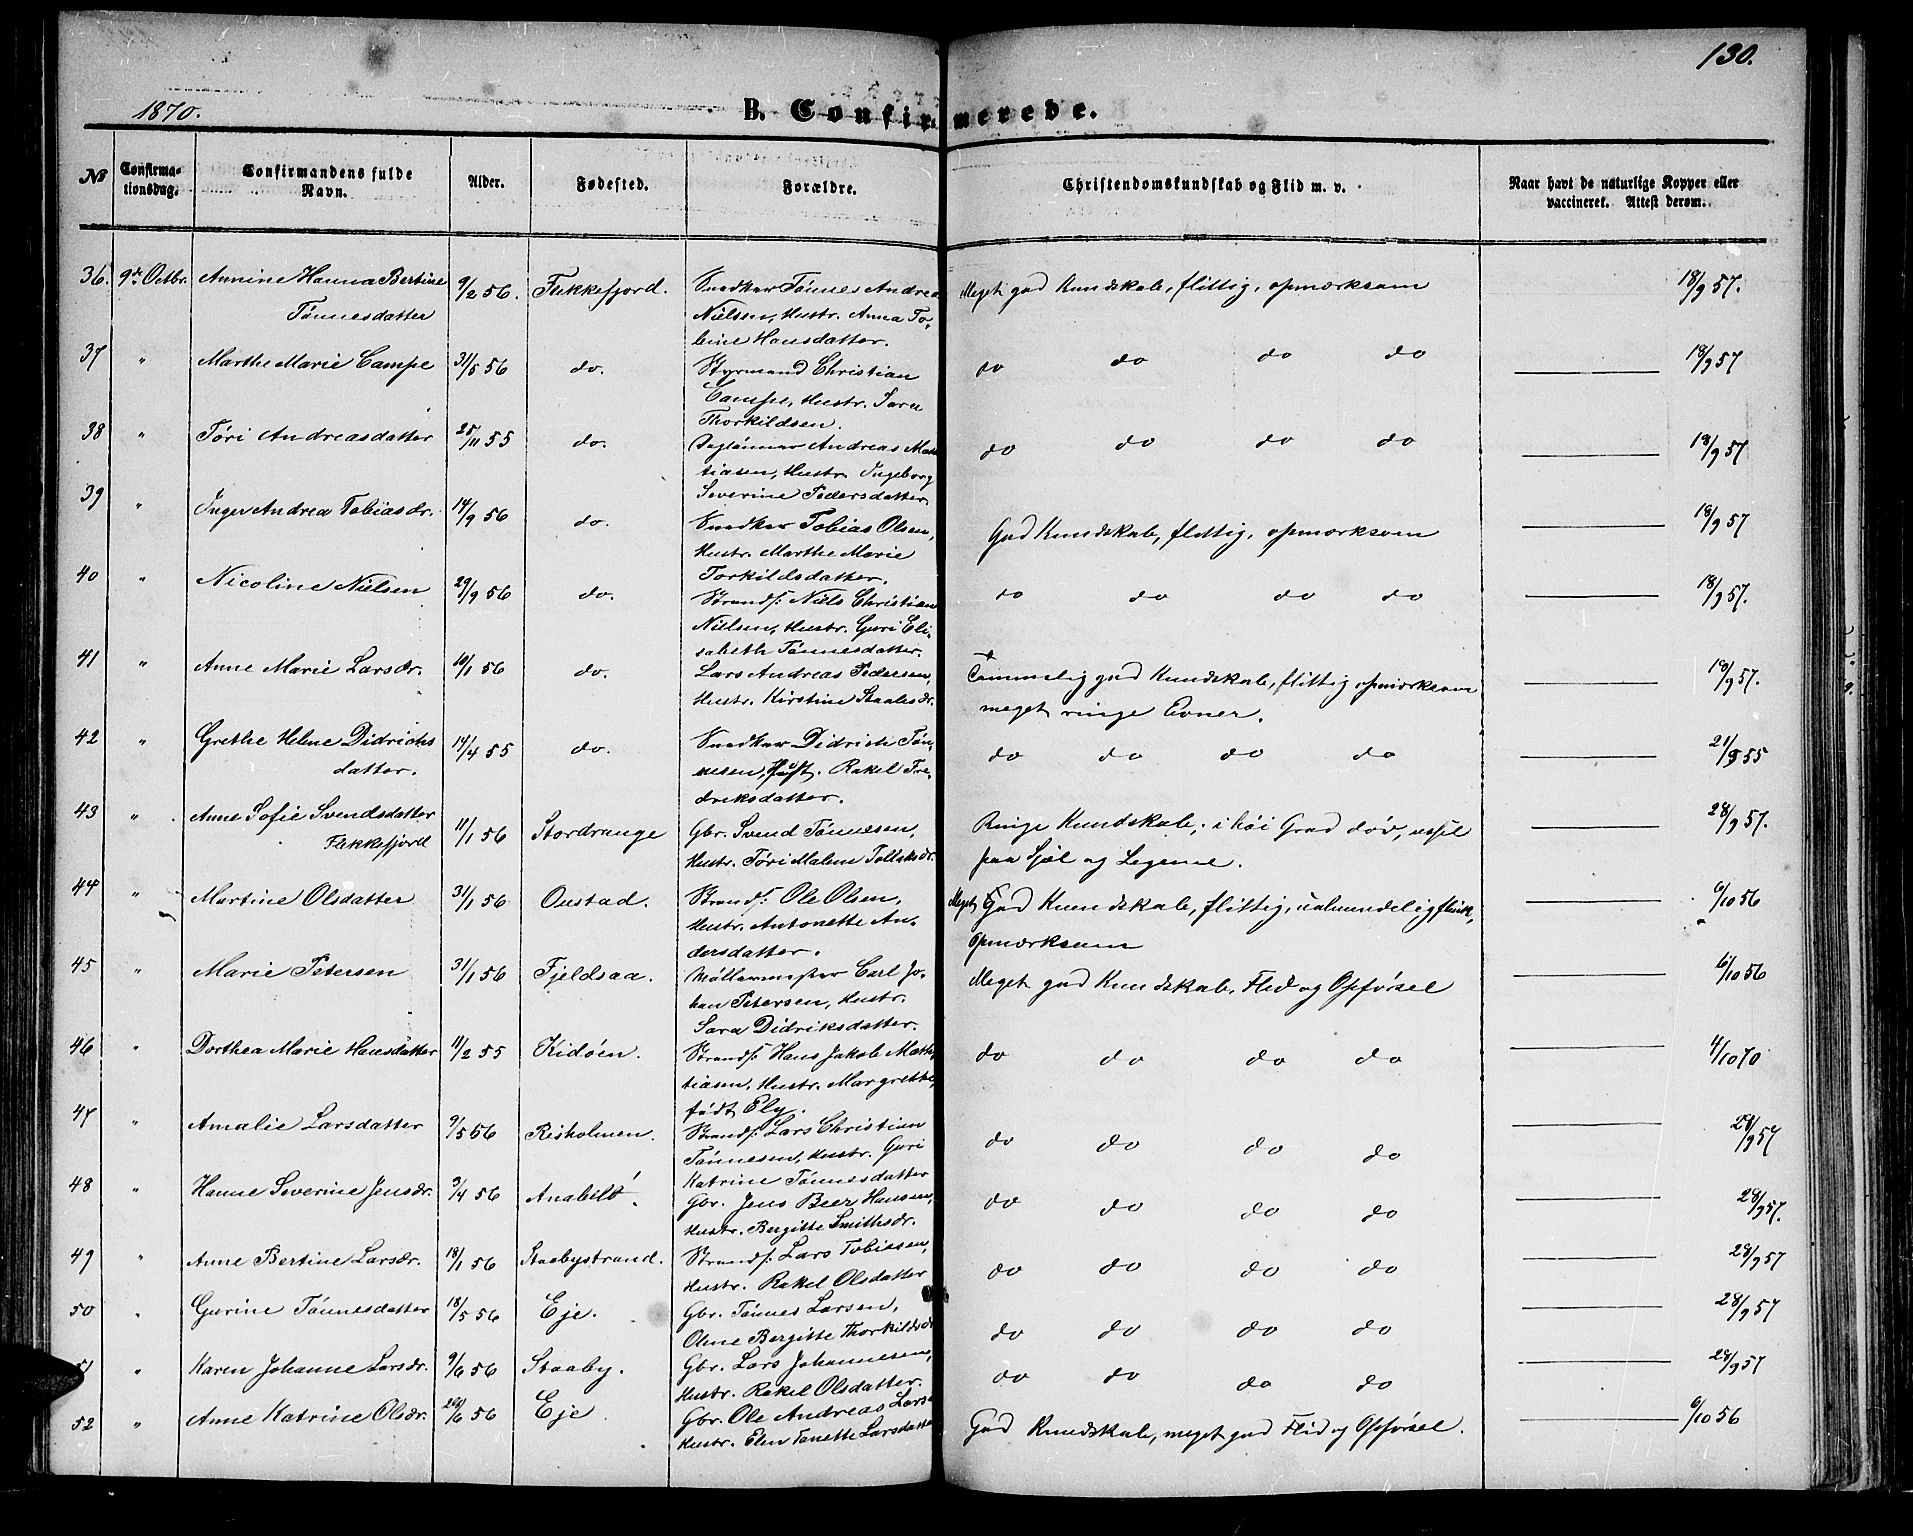 130.
1870.
B. Confirmerede.
№
Confirma-
tionsdag.
Confirmandens fulde
Navn.
Alder.
Fødested.
Forældre.
Christendomskundskab og Flid m. v.
Naar havt de naturlige Kopper eller
vaccineret. Attest derom.
36. 9de Octbr. Annine Hanna Bertine 9/2 56. Flekkefjord. Snedker Tønnes Andreas Meget god Kundskab, flittig, opmærksom 18/9 57.
Tønnesdatter Nielsen, Hustr. Anna To-
bine Hansdatter.
37 " Marthe Marie Campe 31/5 56 do. Styrmand Christian do do do do 18/9 57
Campe, Hustr. Sara
Thorkildsen.
38 " Tøri Andreasdatter 25/11 55 do. Daglønner Andreas Mat- do do do do 18/9 57
tiasen, Hustr. Ingeborg
Severine Pedersdatter.
39 " Inger Andrea Tobiasdr. 14/9 56 do. Snedker Tobias Olsen, God Kundskab, flittig, opmærksom 18/9 57
Hustr. Marthe Marie
Torkildsdatter.
40 " Nicoline Nielsen 29/9 56 do. Strands: Niels Christian do do do do 18/9 57.
Nielsen, Hustr. Guri Eli-
sabeth Tønnesdatter.
41 " Anne Marie Larsdr. 10/1 56 do. Lars Andreas Pedersen, Temmelig god Kundskab, flittig opmærksom 18/9 57.
Hustr. Kirstine Staalesdr. meget ringe Evner.
42 " Grethe Helene Didrichs 14/4 55 do. Snedker Didrich Tøn- do do do do 21/9 55
datter. nesen, Rakel Fre-
driksdatter.
43 " Anne Sofie Svendsdatter 11/1 56 Stordrange Gbr. Svend Tønnesen, Ringe Kundskab; i høi Grad døv, ussel 28/9 57.
Flekkefjord Hustr. Tøri Malene Tollaksdr. paa Sjæl og Legeme.
44 " Martine Olsdatter 31/1 56 Oustad. Strands: Ole Olsen, Meget God Kundskab, flittig, ualmindelig flink, 6/10 56
Hustr. Antonette An- opmærksom
dersdatter.
45 " Marie Petersen 31/1 56 Fjeldsaa. Møllermester Carl Jo- Meget god Kundskab, Flid og Opførsel 6/10 56
han Petersen, Hustr.
Sara Didriksdatter.
46 " Dorthea Marie Hansdatter 11/2 55 Kidøen. Strands: Hans Jakob Mat- do do do do 4/10 70
tiasen, Hustr. Margrethe,
født Ely.
47 " Amalie Larsdatter 9/5 56 Risholmen. Strands: Lars Christian do do do do 28/9 57
Tønnesen, Hustr. Guri
Katrine Tønnesdatter
48 " Hanne Severine Jensdr. 3/4 56 Anabilt. Gbr. Jens Beer Hansen, do do do do 28/9 57.
Hustr. Bergitte Smithsdr.
49 " Anne Bertine Larsdr. 18/1 56 Staabystrand. Strands: Lars Tobiesen, do do do do 28/9 57
Hustr. Rakel Olsdatter
50 " Gurine Tønnesdatter 18/5 56 Eje. Gbr. Tønnes Larsen, do do do do 28/9 57
Oline Bergitte Thorkildsdr.
51 " Karen Johanne Larsdr. 9/6 56 Staaby. Gbr. Lars Johannesen, do do do do 28/9 57
Hustr. Rakel Olsdatter.
52 " Anne Katrine Olsdr. 20/6 56 Eje. Gbr. Ole Andreas Lars- God Kundskab, meget god Flid og Opførsel. 6/10 56
Hustr. Elen Tanette Larsdatter